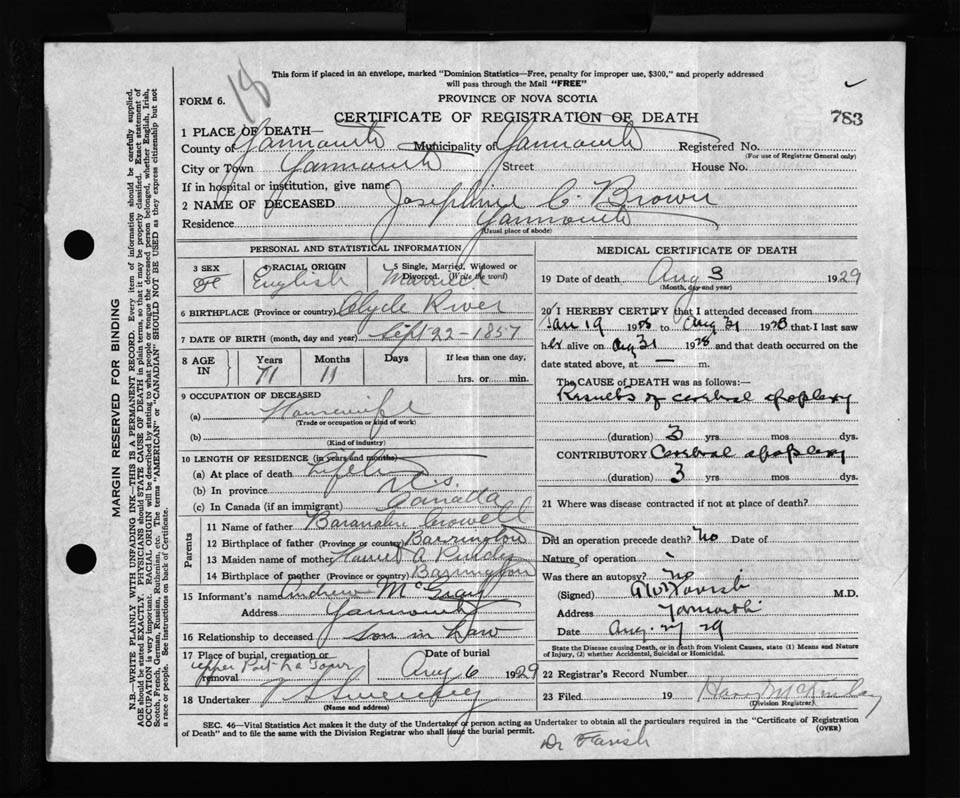 18
This form if placed in an envelope, marked "Dominion Statistics—Free, penalty for improper use, $300," and properly addressed
will pass through the Mail "FREE"
FORM 6.
PROVINCE OF NOVA SCOTIA
CERTIFICATE OF REGISTRATION OF DEATH
783
1 PLACE OF DEATH—
County of Yarmouth Municipality of Yarmouth Registered No.
(For use of Registrar General only)
City or Town Yarmouth Street House No.
If in hospital or institution, give name
2 NAME OF DECEASED Josephine C. Brown
Residence Yarmouth
(Usual place of abode)
PERSONAL AND STATISTICAL INFORMATION
3 SEX 4 RACIAL ORIGIN 5 Single, Married, Widowed or Divorced. (Write the word)
Fe English Married
6 BIRTHPLACE (Province or country) Clyde River
7 DATE OF BIRTH (month, day and year) Sept 22-1857
8 AGE IN Years Months Days If less than one day,
71 11 hrs. or min.
9 OCCUPATION OF DECEASED
(a) Housewife
(Trade or occupation or kind of work)
(b)
(Kind of industry)
10 LENGTH OF RESIDENCE (in years and months)
(a) At place of death Lifetime
(b) In province N.S.
(c) In Canada (if an immigrant) Canada
Parents
11 Name of father Crowell
12 Birthplace of father (Province or country) Barrington
13 Maiden name of mother Harriet A
14 Birthplace of mother (Province or country) Barrington
15 Informant's name Andrew McGray
Address Yarmouth
16 Relationship to deceased Son in Law
17 Place of burial, cremation or removal Date of burial
Upper Port La Tour Aug 6 1929
18 Undertaker V S Sweeney
(Name and address)
MEDICAL CERTIFICATE OF DEATH
19 Date of death Aug 3 1929
(Month, day and year)
20 I HEREBY CERTIFY that I attended deceased from
Jan 19 1928 to Aug 31 1928 that I last saw
her alive on Aug 31 1928 and that death occurred on the
date stated above, at — m.
The CAUSE OF DEATH was as follows:—
Results of cerebral apoplexy
(duration) 3 yrs mos dys.
CONTRIBUTORY Cerebral apoplexy
(duration) 3 yrs. mos dys.
21 Where was disease contracted if not at place of death?
Did an operation precede death? No Date of
Nature of operation
Was there an autopsy? No
(Signed) Farish M.D.
Address Yarmouth
Date Aug. 27 29
State the Disease causing Death, or in death from Violent Causes, state (1) Means and Nature
of Injury, (2) whether Accidental, Suicidal or Homicidal.
22 Registrar's Record Number
23 Filed 19
(Division Registrar)
SEC. 46—Vital Statistics Act makes it the duty of the Undertaker or person acting as Undertaker to obtain all the particulars required in the "Certificate of Registration
of Death" and to file the same with the Division Registrar who shall issue the burial permit.
(OVER)
Dr Farish
MARGIN RESERVED FOR BINDING
N.B.—WRITE PLAINLY WITH UNFADING INK—THIS IS A PERMANENT RECORD. Every item of information should be carefully supplied.
AGE should be stated EXACTLY. PHYSICIANS should STATE CAUSE OF DEATH in plain terms, so that it may be properly classified. Exact statement of
OCCUPATION is very important. RACIAL ORIGIN will be described by stating to what people or tongue the deceased person belonged, whether English, Irish,
Scotch, French, German, Russian, Ruthenian, etc. The terms "AMERICAN" or "CANADIAN" SHOULD NOT BE USED as they express citizenship but not
a race or people. See instructions on back of Certificate.